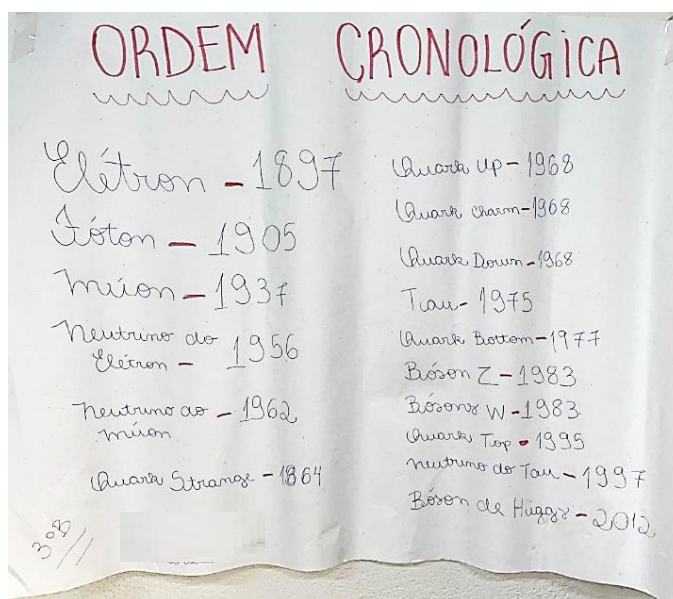 ORDEM CRONOLÓGICA
Elétron - 1897
Fóton - 1905
Múon - 1937
Neutrino do
Elétron - 1956
Neutrino do - 1962
múon
Quark Strange - 1864
308
Quark Up - 1968
Quark charm - 1968
Quark Down - 1968
Tau - 1975
Quark Bottom - 1977
Bóson Z - 1983
Bósons W - 1983
Quark Top - 1995
neutrino do Tau - 1997
Bóson de Higgs - 2012